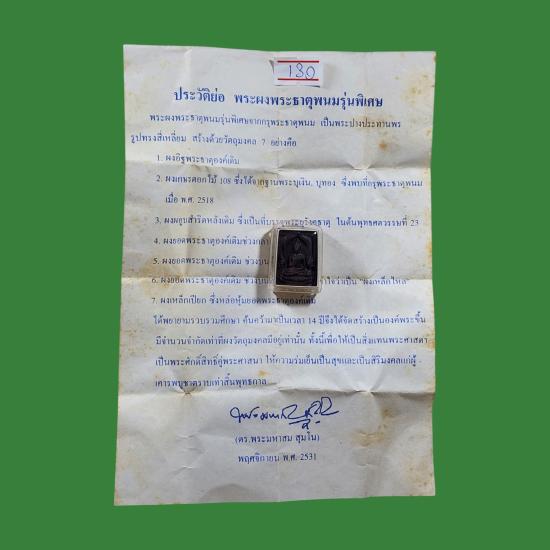 130
ประวัติย่อ พระผงพระธาตุพนมรุ่นพิเศษ
พระผงพระธาตุพนมรุ่นพิเศษจากกรุพระธาตุพนม เป็นพระปางประทานพร
รูปทรงสี่เหลี่ยม สร้างด้วยวัตถุมงคล 7 อย่างคือ
1. ผงอิฐพระธาตุองค์เดิม
2. ผงเกษรดอกไม้ 108 ซึ่งได้จากฐานพระบุเงิน, บุทอง ซึ่งพบที่กรุพระธาตุพนม
เมื่อ พ.ศ. 2518
3. ผงผอบสำริดหลังเดิม ซึ่งเป็นที่บรรจุพระอุรังคธาตุ ในต้นพุทธศตวรรษที่ 23
4. ผงยอดพระธาตุองค์เดิม ช่วงกลาง
5. ผงยอดพระธาตุองค์เดิม ช่วงบน
6. ผงยอดพระธาตุองค์เดิม ช่วงบน เข้าใจว่าเป็น "ผงเหล็กไหล"
7. ผงเหล็กเปียก ซึ่งหล่อหุ้มยอดพระธาตุองค์เดิม
ได้พยายามรวบรวมศึกษา ค้นคว้ามาเป็นเวลา 14 ปีจึงได้จัดสร้างเป็นองค์พระขึ้น
มีจำนวนจำกัดเท่าที่ผงวัตถุมงคลมีอยู่เท่านั้น ทั้งนี้เพื่อให้เป็นสิ่งแทนพระศาสดา
เป็นพระศักดิ์สิทธิ์คู่พระศาสนา ให้ความร่มเย็นเป็นสุขและเป็นสิริมงคลแก่ผู้
เคารพบูชาตราบเท่าสิ้นพุทธกาล
(ดร.พระมหาสม สุมโน)
พฤศจิกายน พ.ศ. 2531